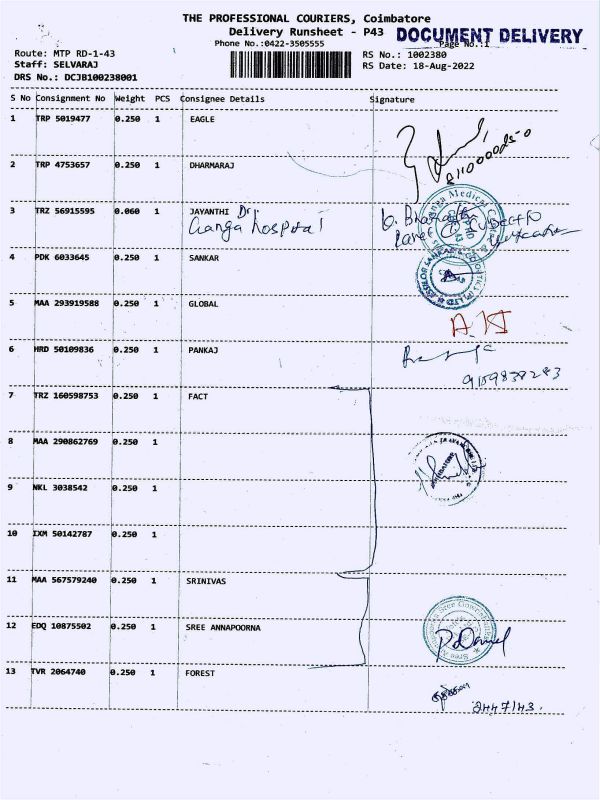 THE PROFESSIONAL COURIERS, Coimbatore
Delivery Runsheet - P43
DOCUMENT DELIVERY
Phone No.:0422-3505555
Page No.:1
Route: MTP RD-1-43
RS No.: 1002380
Staff: SELVARAJ
RS Date: 18-Aug-2022
DRS No.: DCJB100238001
S No Consignment No Weight PCS Consignee Details Signature
1 TRP 5019477 0.250 1 EAGLE
2 TRP 4753657 0.250 1 DHARMARAJ
3 TRZ 56915595 0.060 1 JAYANTHI Dr
Ganga hospital
4 PDK 6033645 0.250 1 SANKAR
5 MAA 293919588 0.250 1 GLOBAL
6 HRD 50109836 0.250 1 PANKAJ
9159838283
7 TRZ 160598753 0.250 1 FACT
8 MAA 290862769 0.250 1
9 NKL 3038542 0.250 1
10 IXM 50142787 0.250 1
11 MAA 567579240 0.250 1 SRINIVAS
12 EDQ 10875502 0.250 1 SREE ANNAPOORNA
13 TVR 2064740 0.250 1 FOREST
2447143